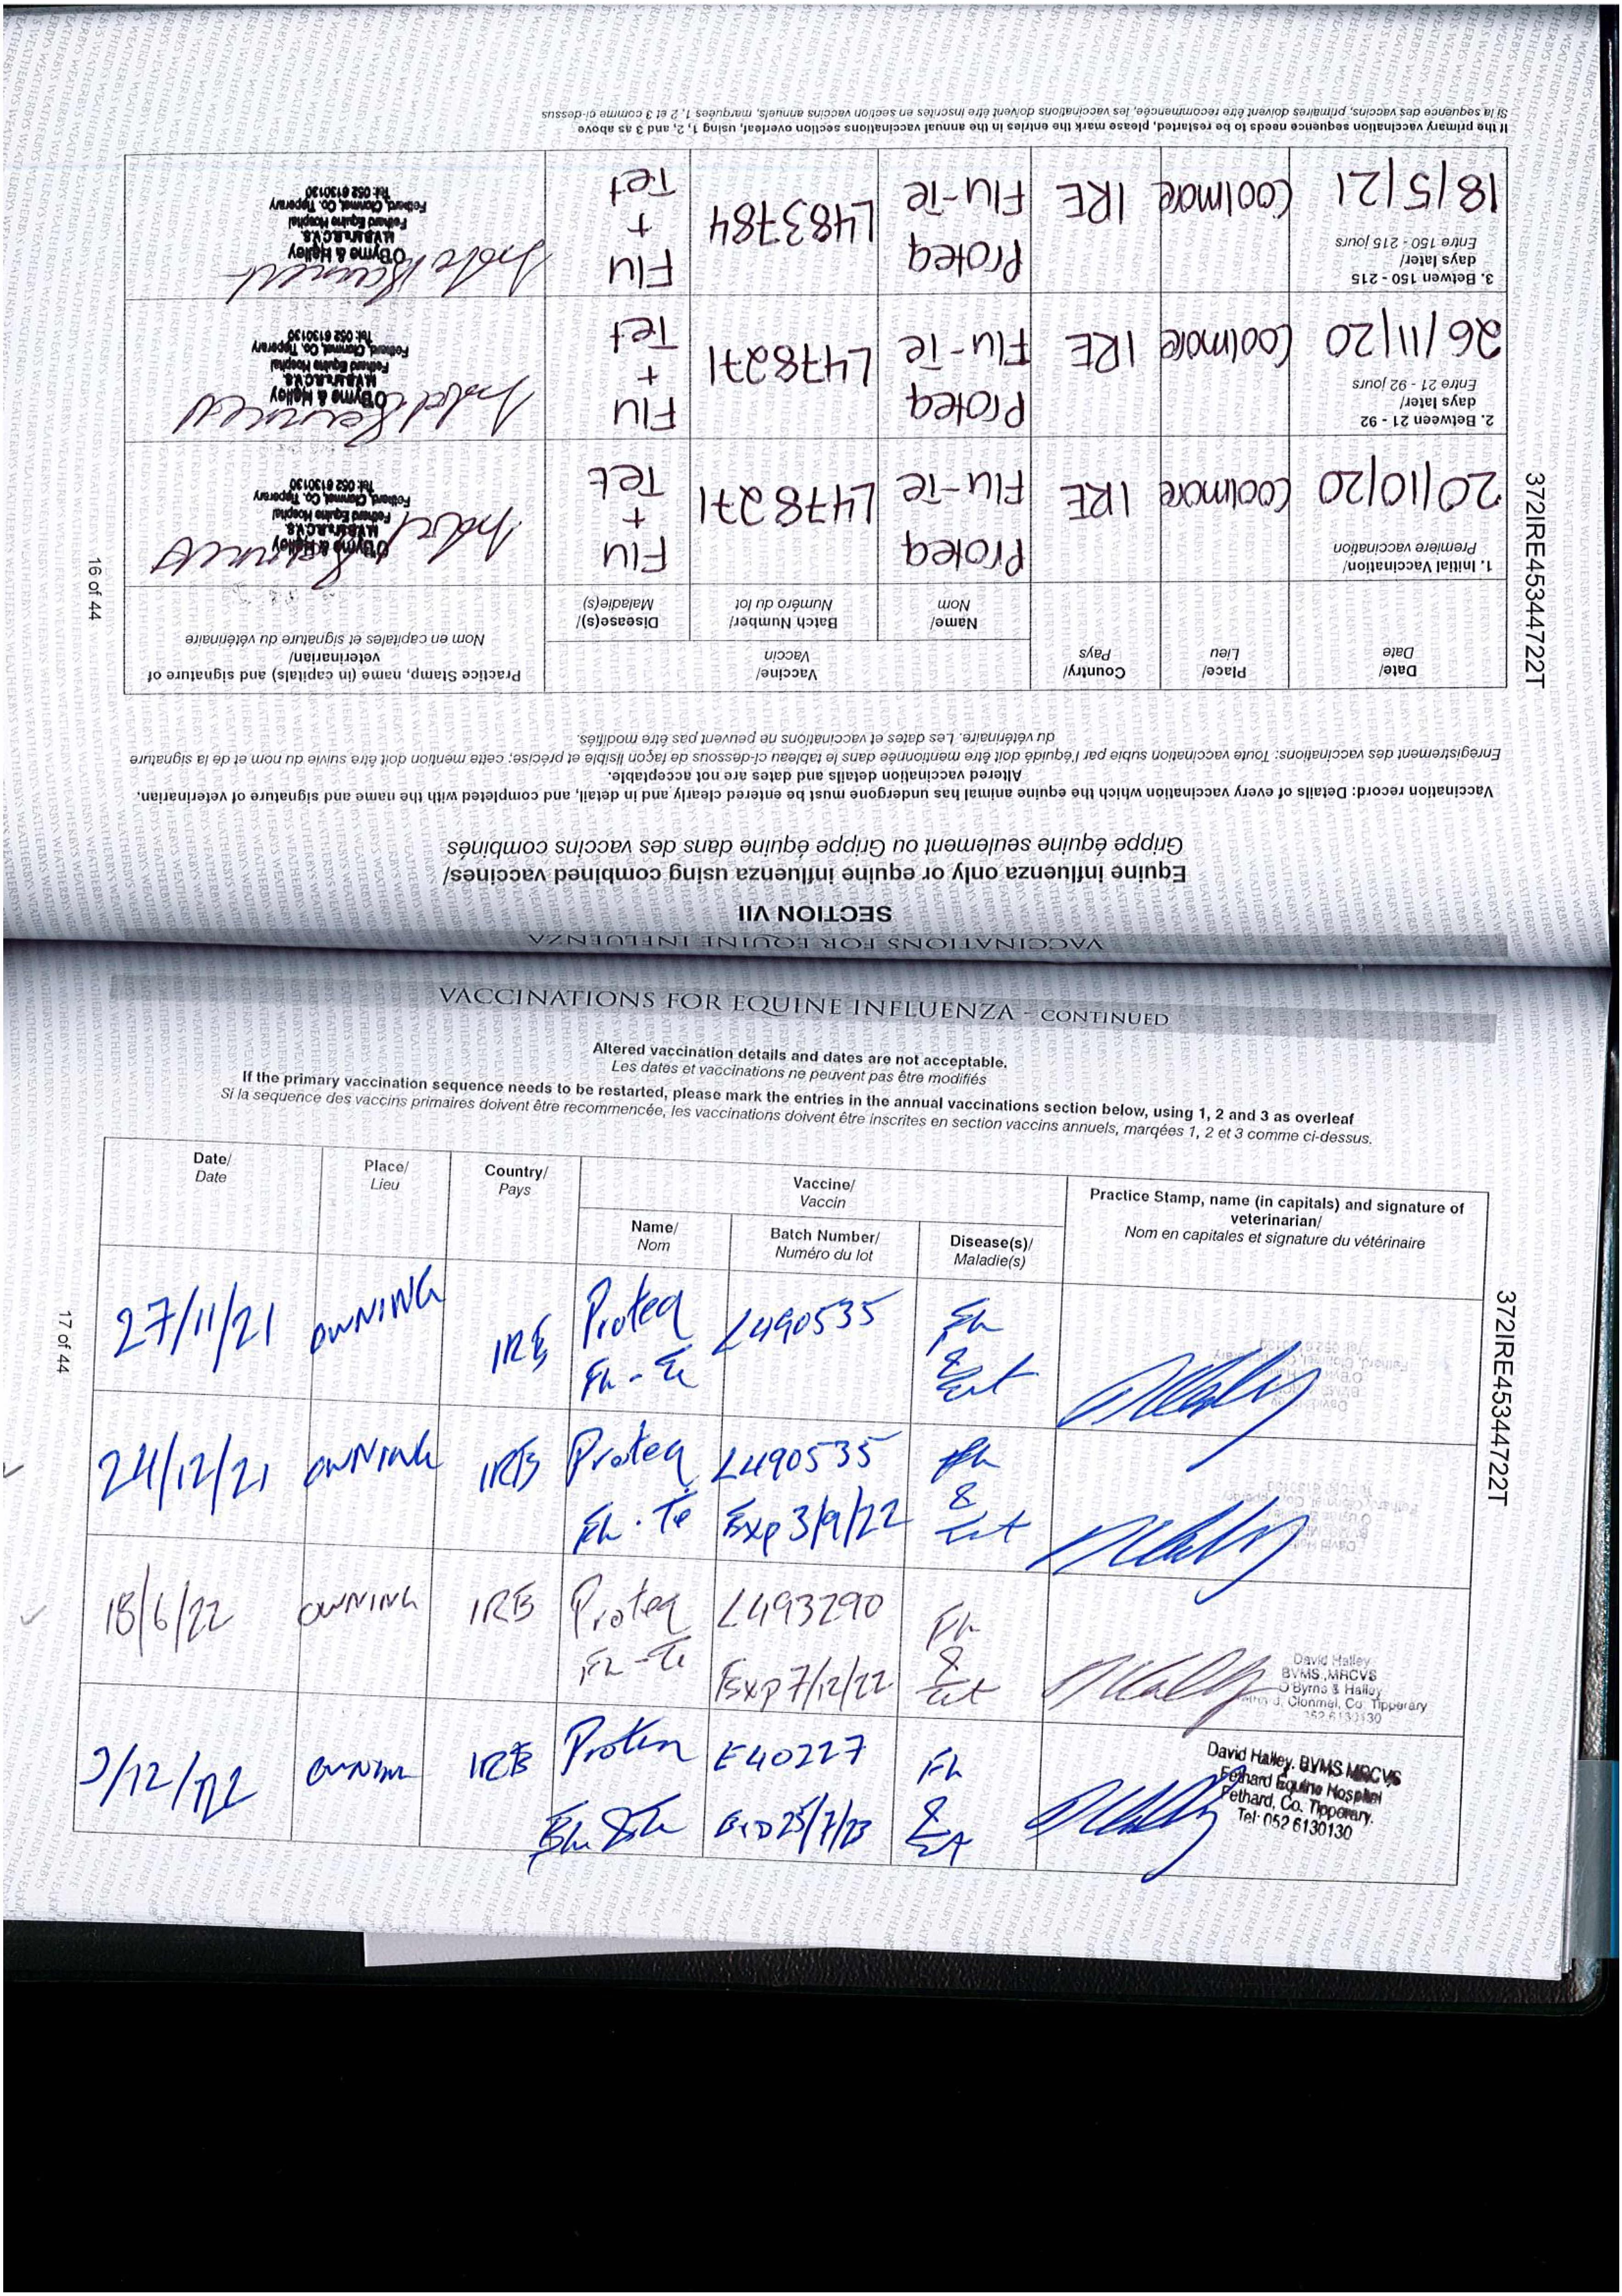 VACCINATIONS FOR EQUINE INFLUENZA
SECTION VII
Equine influenza only or equine influenza using combined vaccines/
Grippe équine seulement ou Grippe équine dans des vaccins combinés
Vaccination record: Details of every vaccination which the equine animal has undergone must be entered clearly and in detail, and completed with the name and signature of veterinarian.
Altered vaccination details and dates are not acceptable.
Enregistrement des vaccinations: Toute vaccination subie par l'équidé doit être mentionnée dans le tableau ci-dessous de façon lisible et précise; cette mention doit être suivie du nom et de la signature
du vétérinaire. Les dates et vaccinations ne peuvent pas être modifiés.
Date/
Date
Place/
Lieu
Country/
Pays
Vaccine/
Vaccin
Name/
Nom
Batch Number/
Numéro du lot
Disease(s)/
Maladie(s)
Practice Stamp, name (in capitals) and signature of
veterinarian/
Nom en capitales et signature du vétérinaire
1. Initial Vaccination/
Première vaccination
20/10/20 Coolmore IRE Proteq Flu-Te L478271 Flu + Tet
O'Byrne & Halley
M.V.B. M.R.C.V.S.
Fethard Equine Hospital
Fethard, Clonmel, Co. Tipperary
Tel: 052 6130130
2. Between 21 - 92
days later/
Entre 21 - 92 jours
26/11/20 Coolmore IRE Proteq Flu-Te L478271 Flu + Tet
O'Byrne & Halley
M.V.B. M.R.C.V.S.
Fethard Equine Hospital
Fethard, Clonmel, Co. Tipperary
Tel: 052 6130130
3. Betwen 150 - 215
days later/
Entre 150 - 215 jours
18/5/21 Coolmore IRE Proteq Flu-Te L483784 Flu + Tet
O'Byrne & Halley
M.V.B. M.R.C.V.S.
Fethard Equine Hospital
Fethard, Clonmel, Co. Tipperary
Tel: 052 6130130
If the primary vaccination sequence needs to be restarted, please mark the entries in the annual vaccinations section overleaf, using 1, 2, and 3 as above
Si la sequence des vaccins, primaires doivent être recommencée, les vaccinations doivent être inscrites en section vaccins annuels, marquées 1, 2 et 3 comme ci-dessus
16 of 44
372IRE45344722T
VACCINATIONS FOR EQUINE INFLUENZA - CONTINUED
Altered vaccination details and dates are not acceptable.
Les dates et vaccinations ne peuvent pas être modifiés
If the primary vaccination sequence needs to be restarted, please mark the entries in the annual vaccinations section below, using 1, 2 and 3 as overleaf
Si la sequence des vaccins primaires doivent être recommencée, les vaccinations doivent être inscrites en section vaccins annuels, marqées 1, 2 et 3 comme ci-dessus.
Date/
Date
Place/
Lieu
Country/
Pays
Vaccine/
Vaccin
Name/
Nom
Batch Number/
Numéro du lot
Disease(s)/
Maladie(s)
Practice Stamp, name (in capitals) and signature of
veterinarian/
Nom en capitales et signature du vétérinaire
27/11/21 OWNING IRE Proteq Flu-Te L490535 Flu & Tet
24/12/21 OWNING IRE Proteq Flu-Te L490535 Exp 3/9/22 Flu & Tet
18/6/22 OWNING IRE Proteq Flu-Te L493290 Exp 7/12/22 Flu & Tet
David Halley
BVMS MRCVS
O'Byrne & Halley
Fethard, Clonmel, Co. Tipperary
052 6130130
/12/22 IRE E40227 25/7/23 Flu &
David Halley, BVMS MRCVS
Fethard Equine Hospital
Fethard, Co. Tipperary.
Tel: 052 6130130
17 of 44
372IRE45344722T